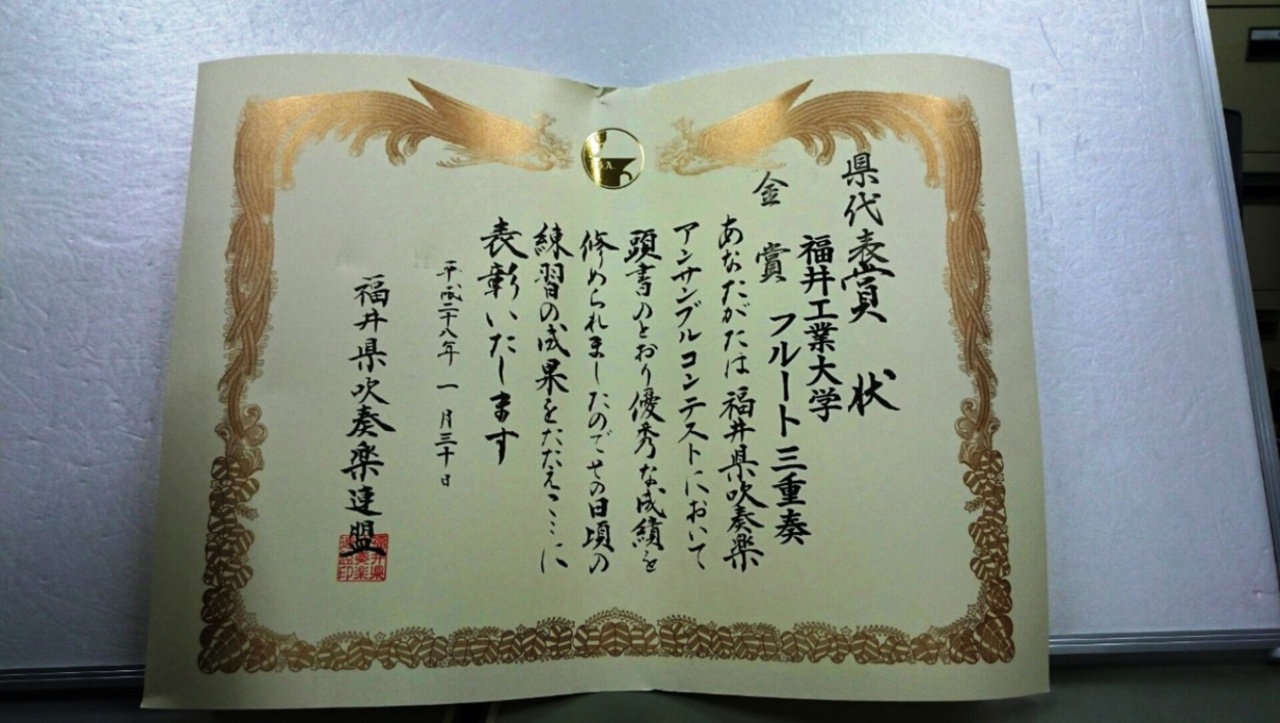 県代表賞状
福井工業大学
フルート三重奏
金賞
あなたがたは福井県吹奏楽
アンサンブルコンテストにおいて
頭書のとおり優秀な成績を
修められましたのでその日頃の
練習の成果をたたえここに
表彰いたします
平成二十八年一月三十日
福井県吹奏楽連盟